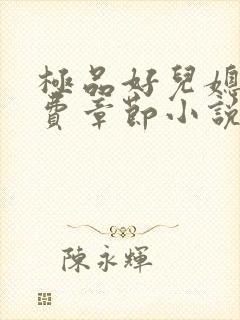 極品好兒媳
費章節小說
陳永輝